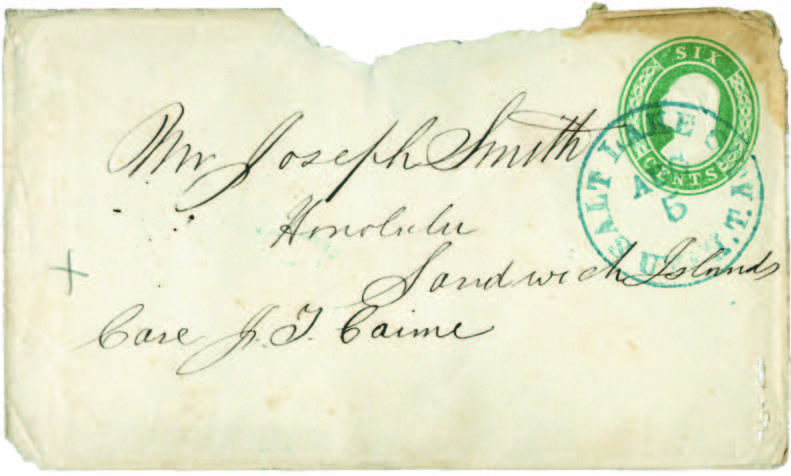 SIX
CENTS
SALT LAKE C
5
U.T.
Mr Joseph Smith
Honolulu
Sandwich Islands
Care J. T. Caine